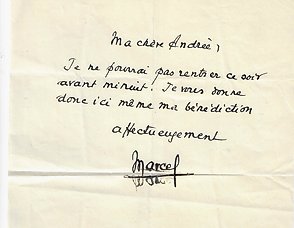 Ma chère Andrée,
Je ne pourrai pas rentrer ce soir
avant minuit. Je vous donne
donc ici même ma bénédiction
affectueusement
Marcel